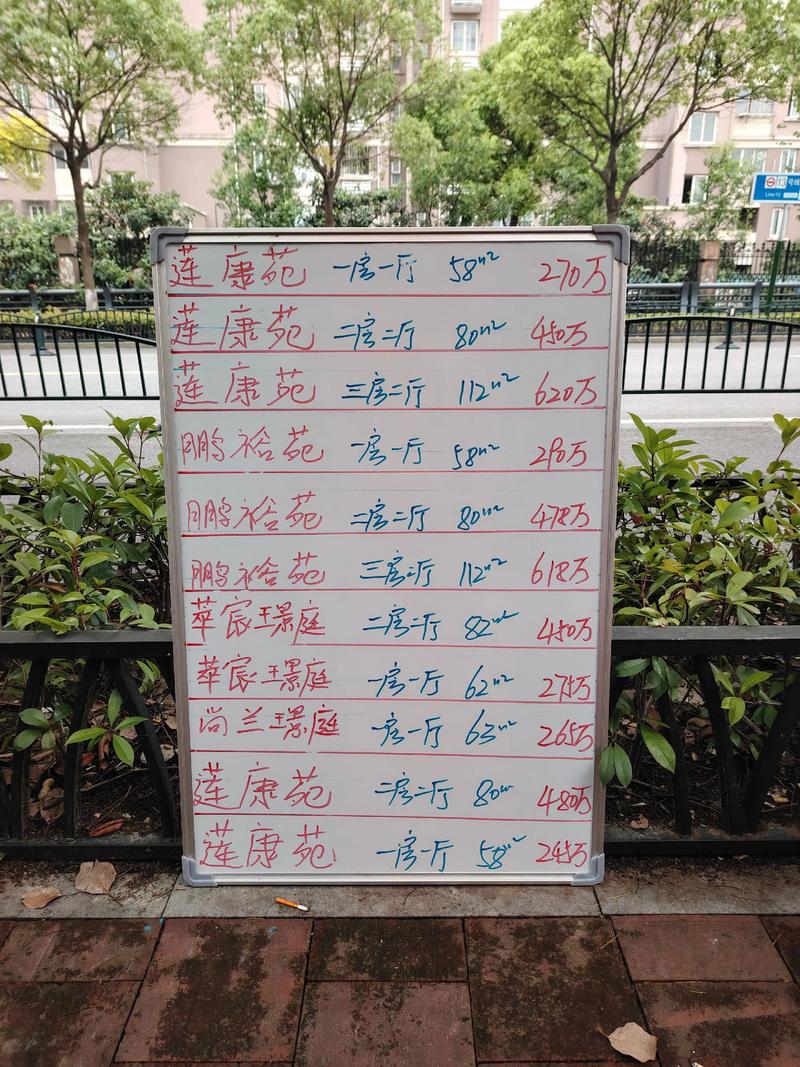 莲康苑 一房一厅 58m² 270万
莲康苑 二房二厅 80m² 450万
莲康苑 三房二厅 112m² 620万
鹏裕苑 一房一厅 58m² 290万
鹏裕苑 二房二厅 80m² 478万
鹏裕苑 三房二厅 112m² 618万
莘宸璟庭 二房二厅 82m² 450万
莘宸璟庭 一房一厅 62m² 275万
尚兰璟庭 一房一厅 63m² 265万
莲康苑 二房二厅 80m² 480万
莲康苑 一房一厅 58m² 245万
13号线
Line 13